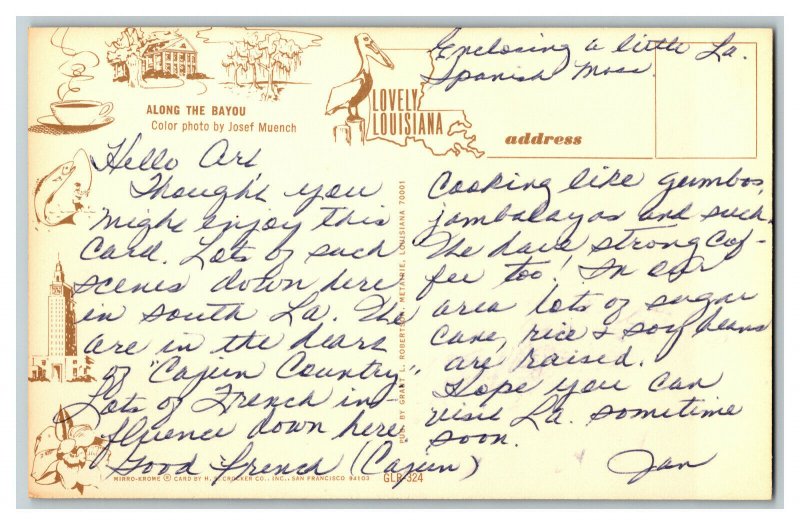 Enclosing a little La.
Spanish Moss.
ALONG THE BAYOU
Color photo by Josef Muench
LOVELY
LOUISIANA
address
Hello Art
Thought you
might enjoy this
Card. Lots of such
scenes down here
in south La. We
are in the heart
of "Cajun Country,"
Lots of French in
fluence down here.
Good french (Cajun)
cooking like gumbos,
jambalayas and such.
We have strong cof-
fee too! In our
area lots of sugar
cane, rice & soy beans
are raised.
Hope you can
visit La. sometime
soon.
Jan
PUB. BY GRANT L. ROBERTSON, METAIRIE, LOUISIANA 70001
MIRRO-KROME ® CARD BY H. S. CROCKER CO., INC., SAN FRANCISCO 94103
GLR-324